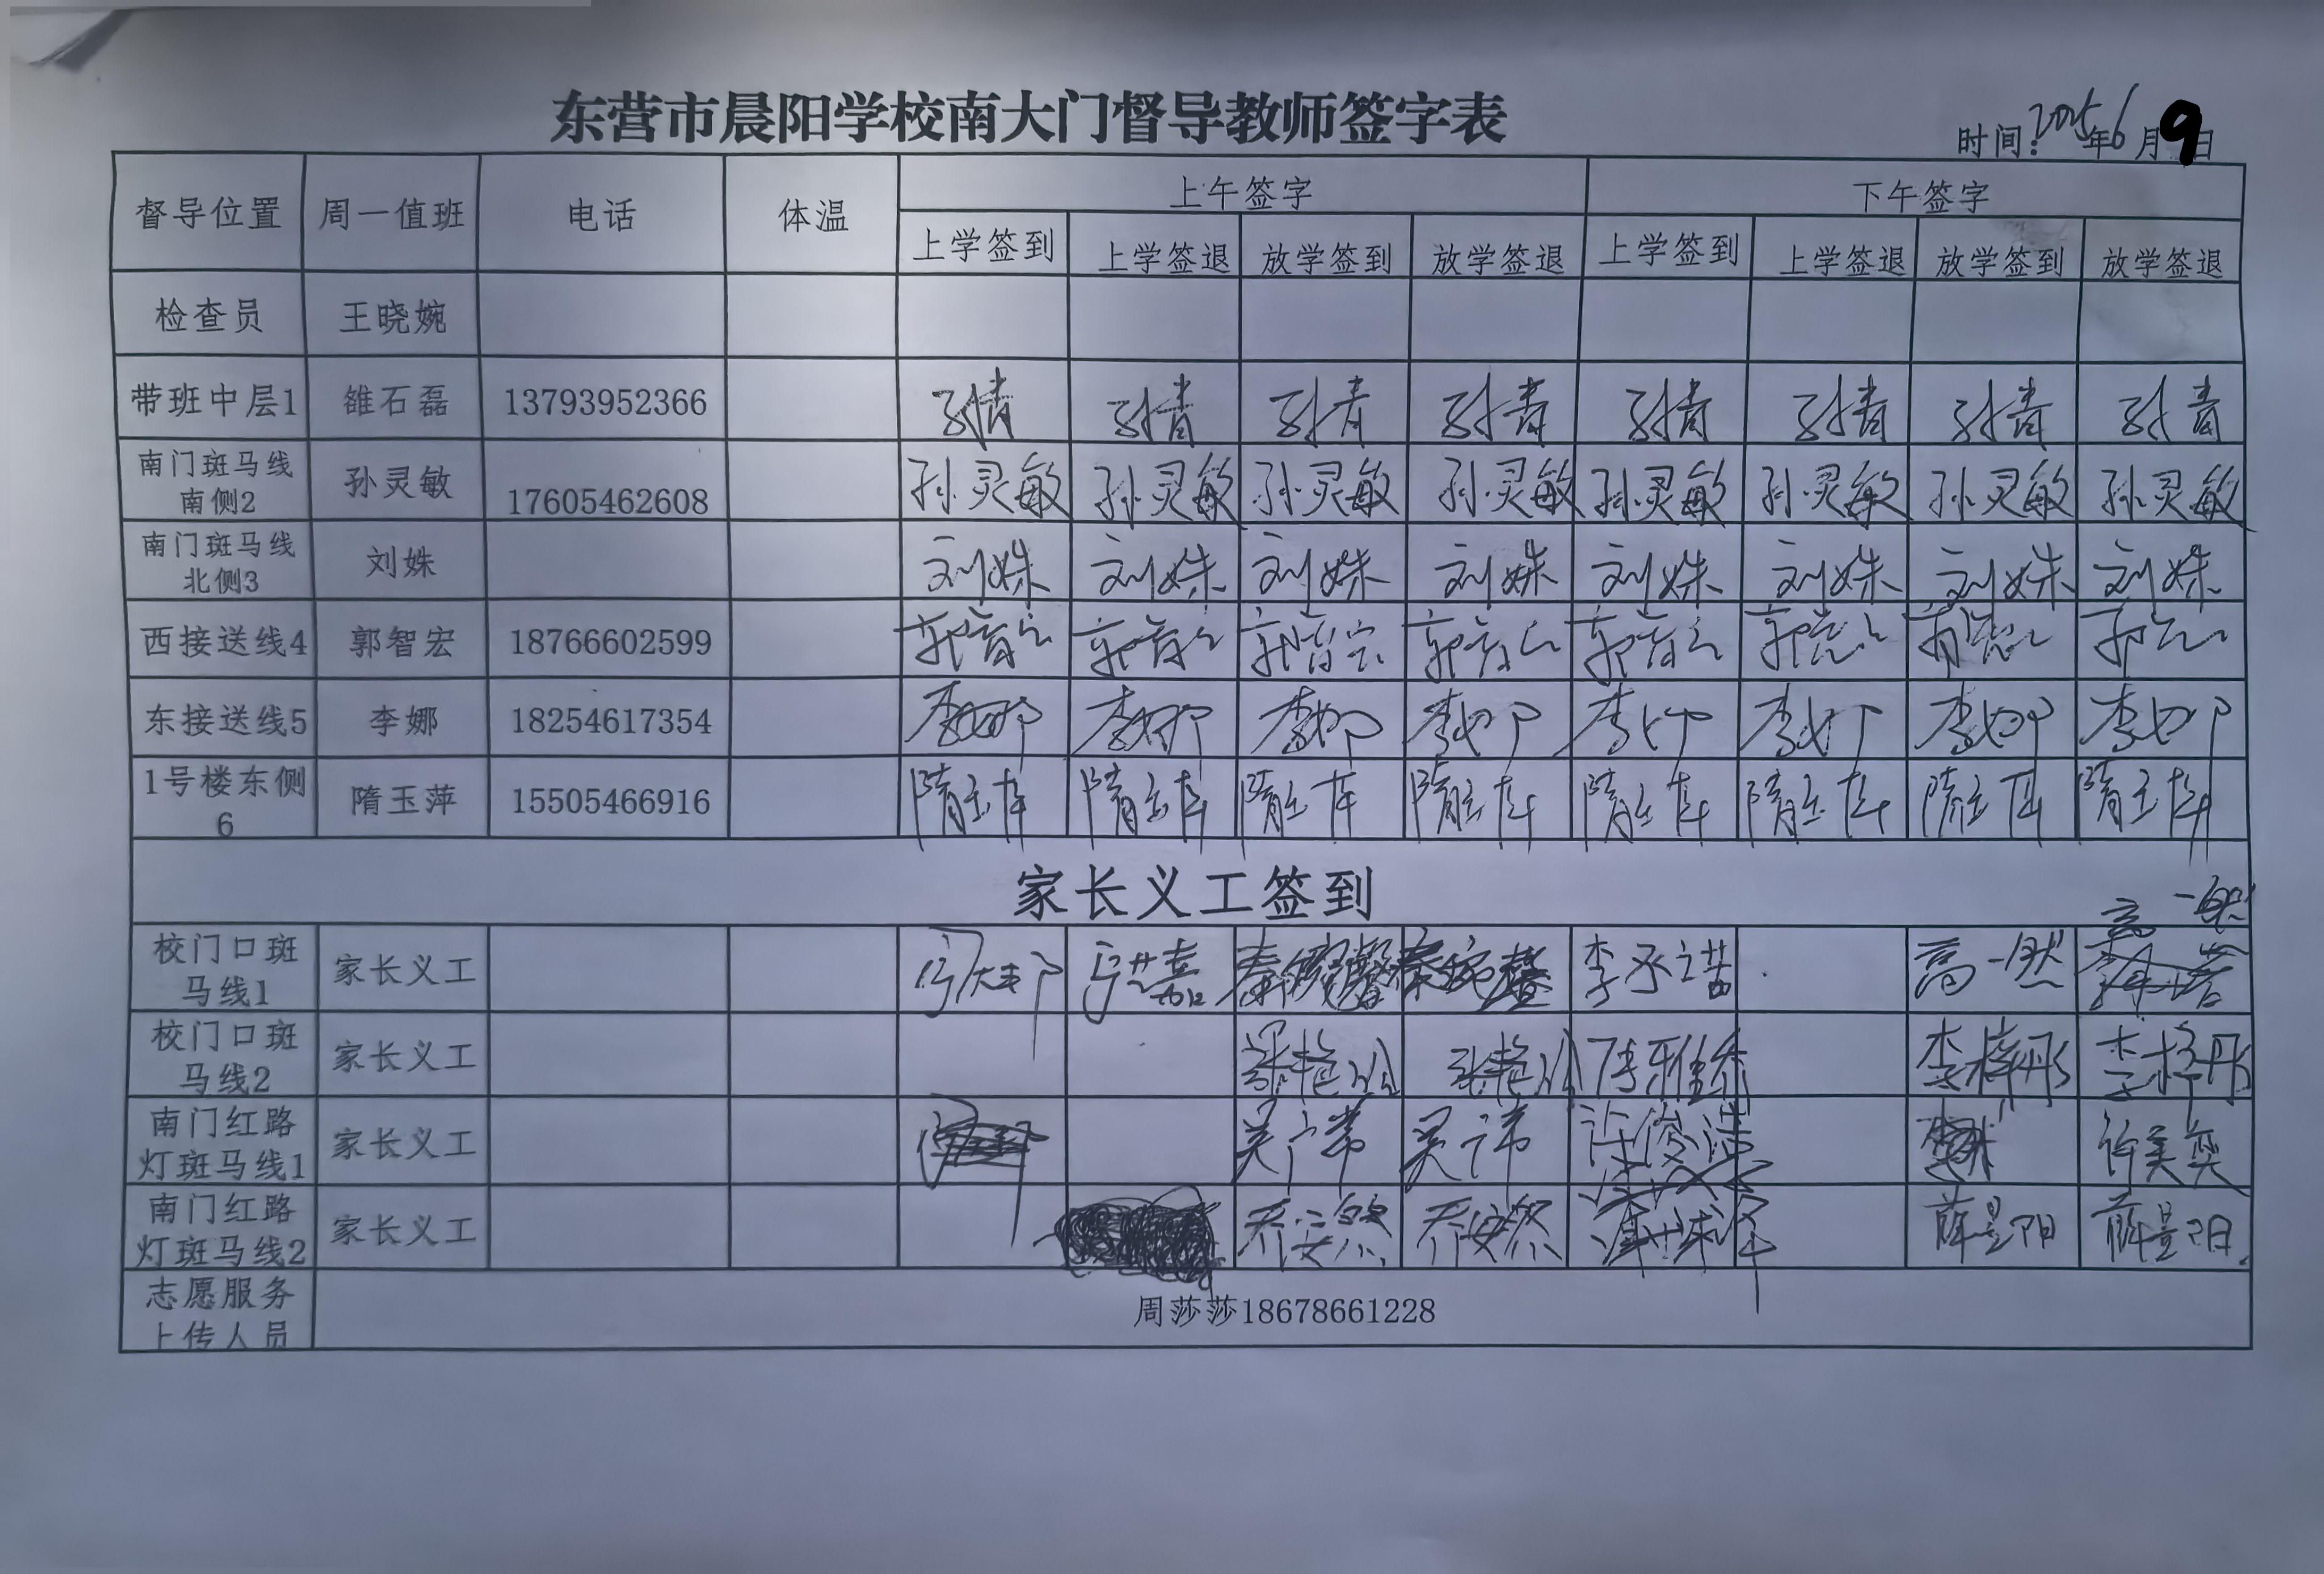 东营市晨阳学校南大门督导教师签字表
时间:2025年6月9日
督导位置 周一值班 电话 体温 上午签字 下午签字
上学签到 上学签退 放学签到 放学签退 上学签到 上学签退 放学签到 放学签退
检查员 王晓婉
带班中层1 雒石磊 13793952366
南门斑马线
南侧2 孙灵敏 17605462608 孙灵敏 孙灵敏 孙灵敏 孙灵敏 孙灵敏 孙灵敏 孙灵敏 孙灵敏
南门斑马线
北侧3 刘姝 刘姝 刘姝 刘姝 刘姝 刘姝 刘姝 刘姝 刘姝
西接送线4 郭智宏 18766602599 郭智宏 郭智宏 郭智宏 郭智宏 郭智宏 郭智宏 郭智宏 郭智宏
东接送线5 李娜 18254617354 李娜 李娜 李娜 李娜 李娜 李娜 李娜 李娜
1号楼东侧
6 隋玉萍 15505466916 隋玉萍 隋玉萍 隋玉萍 隋玉萍 隋玉萍 隋玉萍 隋玉萍 隋玉萍
家长义工签到
高一然
校门口斑
马线1 家长义工 李丞诺 高一然
校门口斑
马线2 家长义工 李梓彤 李梓彤
南门红路
灯斑马线1 家长义工 许美奕
南门红路
灯斑马线2 家长义工 乔安然 乔安然 薛景阳 薛景阳
志愿服务
上传人员 周莎莎18678661228